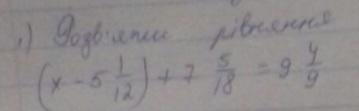 1) Розв'язати рівняння
(x - 5 1/12) + 7 5/18 = 9 4/9